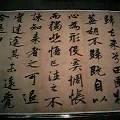 歸去來兮田園將
蕪胡不歸既自以
心為形役奚惆悵
而獨悲悟已往之不
諫知來者之可追
實迷途其未遠覺